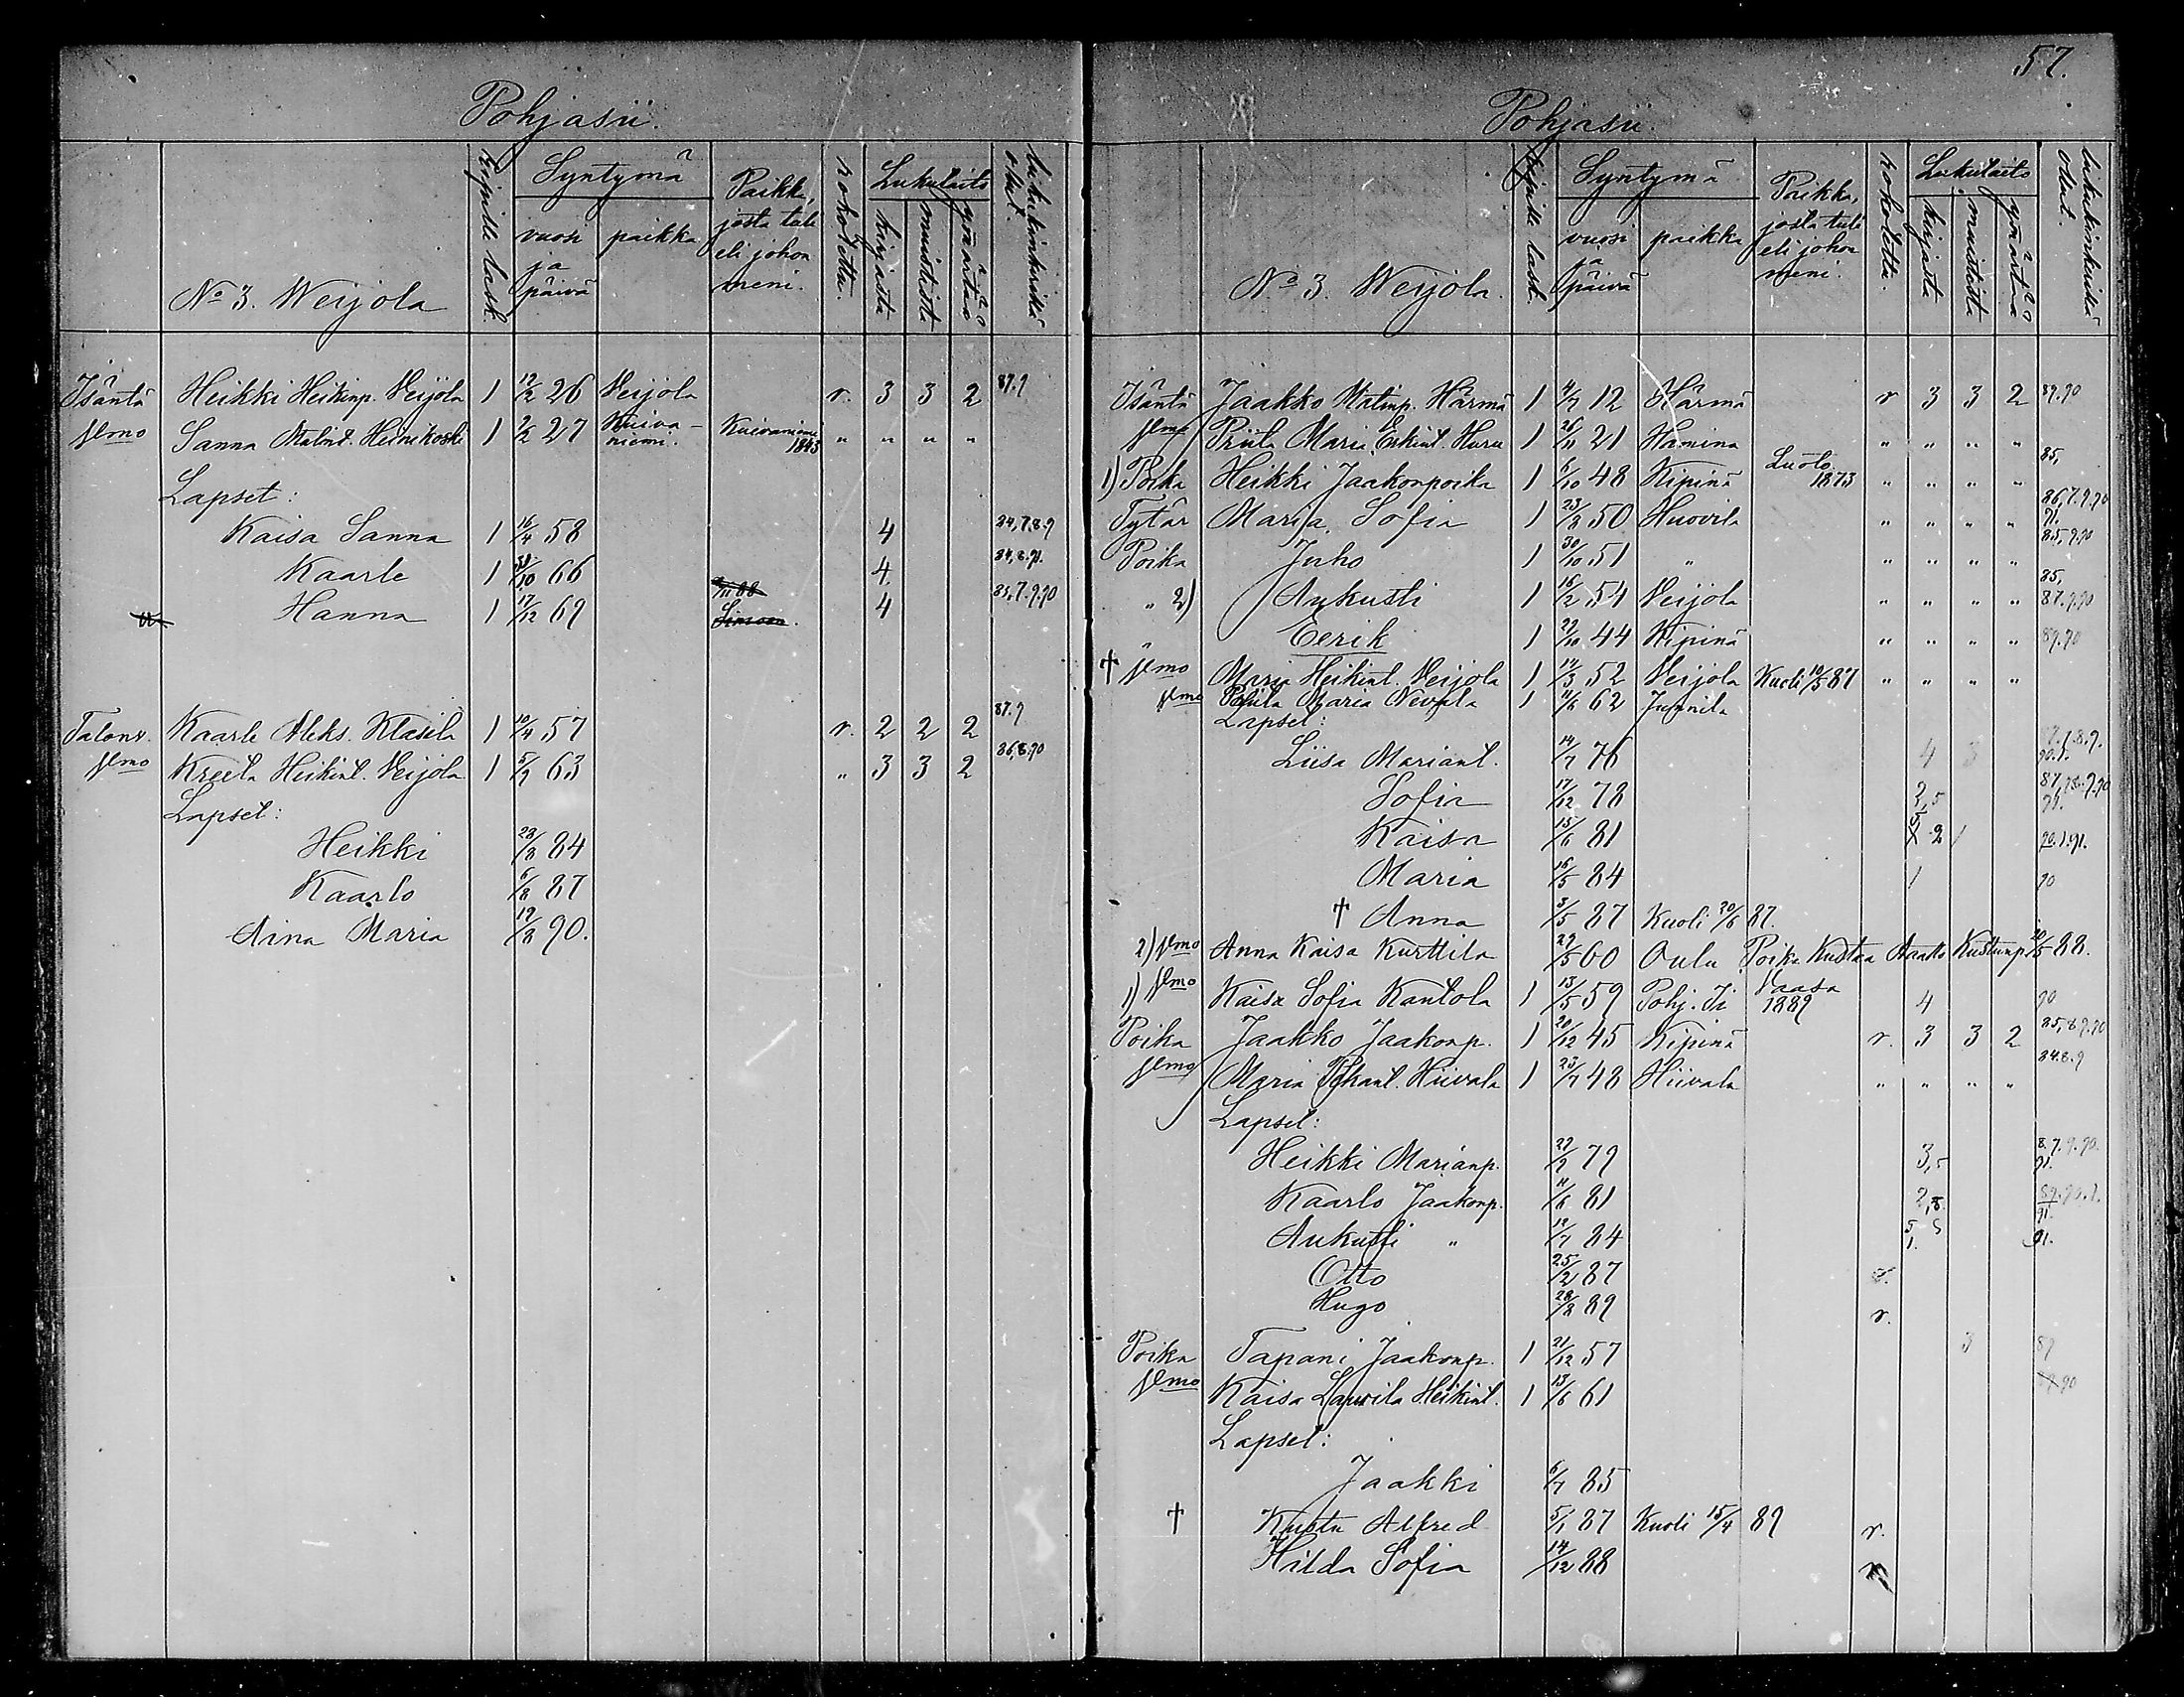 57.
Pohjasii.
No 3. Weijola
Ripille lask.
Syntymä
vuosi ja päivä
paikka
Paikka, josta tuli eli johon meni.
rokotettu.
Lukutaito
kirjasta
muistista
ymmärtää
lukukinkerillä ollut.
Isäntä Heikki Heikinp. Veijola 1 12/2 26 Veijola r. 3 3 2 87.9
Vmo Sanna Matint. Heinikoski 1 2/2 27 Kuivaniemi. Kuivaniemi 1843 " " " "
Lapset:
Kaisa Sanna 1 16/4 58 4 84,7.8.9
Kaarle 1 31/10 66 4. 84,8.91.
Hanna 1 17/12 69 Simoon. 4 85,7.9.90
Talonv. Kaarle Aleks. Klasila 1 10/4 57 r. 2 2 2 87.9
Vmo Kreeta Heikint. Veijola 1 5/9 63 " 3 3 2 86,8.90
Lapset:
Heikki 23/8 84
Kaarlo 6/8 87
Aina Maria 19/8 90.
Pohjasii.
No 3. Weijola.
Ripille lask.
Syntymä
vuosi ja päivä
paikka
Paikka, josta tuli eli johon meni.
rokotettu.
Lukutaito
kirjasta
muistista
ymmärtää
lukukinkerillä ollut.
Isäntä Jaakko Matinp. Härmä 1 4/7 12 Härmä r 3 3 2 89.90
Vmo Priita Maria Erkint. Huru 1 26/11 21 Hamina " " " "
1) Poika Heikki Jaakonpoika 1 6/10 48 Kipinä Luoto 1873 " " " " 85,
Tytär Maria Sofia 1 23/8 50 Huovila " " " " 86,7.9.90 91.
Poika Juho 1 30/10 51 " " " " " 85,9.90
" 2) Aukusti 1 16/2 54 Veijola " " " " 85, 87.9.90
" Eerik 1 22/10 44 Kipinä " " " " 89.90
† Vmo Maria Heikint. Veijola 1 14/3 52 Veijola Kuoli 10/5 87 " " " "
Vmo Priita Maria Nevala 1 11/6 62 Junnila
Lapset:
Liisa Mariant. 14/7 76 4 3
Sofia 17/12 78
Kaisa 15/6 81 90.1.91.
Maria 16/5 84 1 90
† Anna 3/5 87 Kuoli 20/6 87.
2) Vmo Anna Kaisa Kurttila 29/5 60 Oulu Poika Kustaa Kustaanp. 20/5 88.
1) Vmo Kaisa Sofia Kantola 1 13/5 59 Pohj. Ii Vaasa 1889 4 90
Poika Jaakko Jaakonp. 1 20/12 45 Kipinä r. 3 3 2 85,8.9.90
Vmo Maria Hiivala 1 23/7 48 Hiivala " " " " 84.8.9
Lapset:
Heikki Marianp. 22/9 79 3,5 8,7.9.90. 91.
Kaarlo Jaakonp. 11/6 81 91.
Aukusti " 19/7 84 91.
Otto 25/2 87
Hugo 28/8 89 r.
Poika Tapani Jaakonp. 1 21/12 57 3 89
Vmo Kaisa Laurila Heikint. 1 13/6 61 90
Lapset:
Jaakki 6/7 85
† Kusta Alfred 5/1 87 Kuoli 15/4 89 r.
Hilda Sofia 14/12 88 r